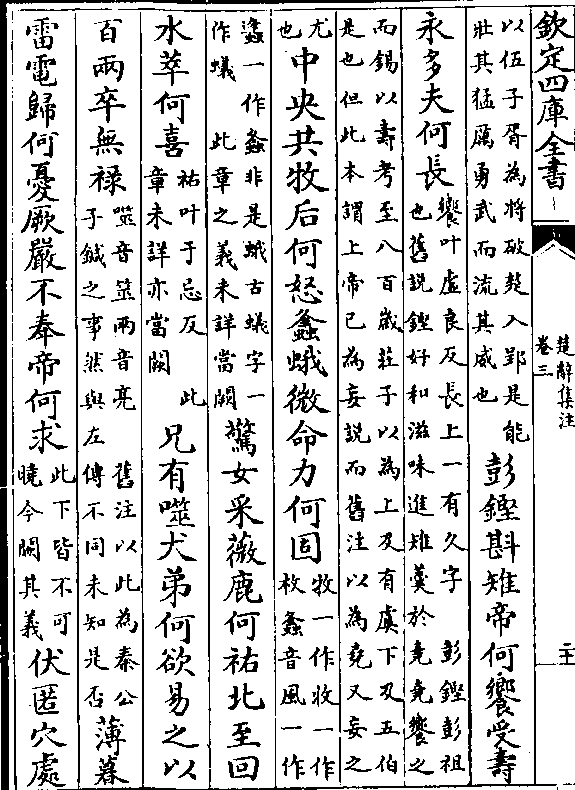 欽定四庫全書
楚辭集注
卷三
二十
以伍子胥為將破楚入郢是能
壯其猛厲勇武而流其威也
彭鏗斟雉帝何饗受壽
永多夫何長
饗叶虛良反長上一有久字 彭鏗彭祖
也舊說鏗好和滋味進雉羹於堯堯饗之
而錫以壽考至八百歲莊子以為上及有虞下及五伯
是也但此本謂上帝已為妄說而舊注以為堯又妄之
尤
也
中央共牧后何怒螽蛾微命力何固
牧一作收一作
枚螽音風一作
蠭一作螽非是蛾古蟻字一
作蟻 此章之義未詳當闕
驚女采薇鹿何祐北至回
水萃何喜
祐叶于忌反 此
章未詳亦當闕
兄有噬犬弟何欲易之以
百兩卒無祿
噬音筮兩音亮 舊注以此為秦公
子鍼之事然與左傳不同未知是否
薄暮
雷電歸何憂厥嚴不奉帝何求
此下皆不可
曉今闕其義
伏匿穴處